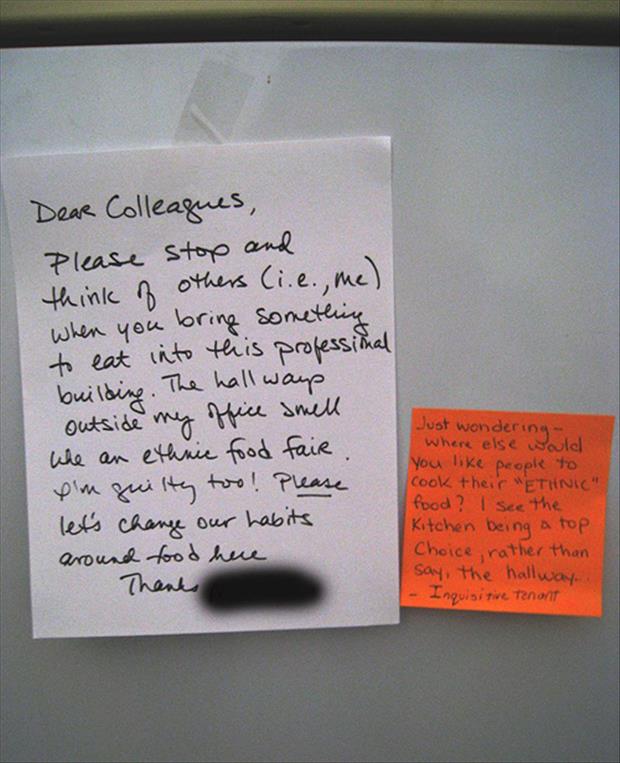 Dear Colleagues,
Please stop and
think of others (i.e., me)
when you bring something
to eat into this professional
building. The hallways
outside my office smell
like an ethnic food fair.
I'm guilty too! Please
let's change our habits
around food here
Thanks
Just wondering -
where else would
you like people to
cook their "ETHNIC"
food? I see the
Kitchen being a top
Choice, rather than
say, the hallway...
- Inquisitive Tenant